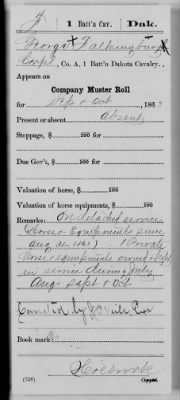 1 Batt'n Cav. Dak.
George Falkingburg
Corpl, Co. A, 1 Batt'n Dakota Cavalry.
Appears on
Company Muster Roll
for Sept & Oct, 186
Present or absent Absent
Stoppage, $ 100
Due Gov't, $ 100
Valuation of horse, $ 100
Valuation of horse equipments, $ 100
Remarks: On detached service
Horse & Equipments since
Aug 31 1863 / Private
Horse & equipments owned & kept
in service during July
Aug Sept & Oct
Book mark:
Holbrook
Copyist.